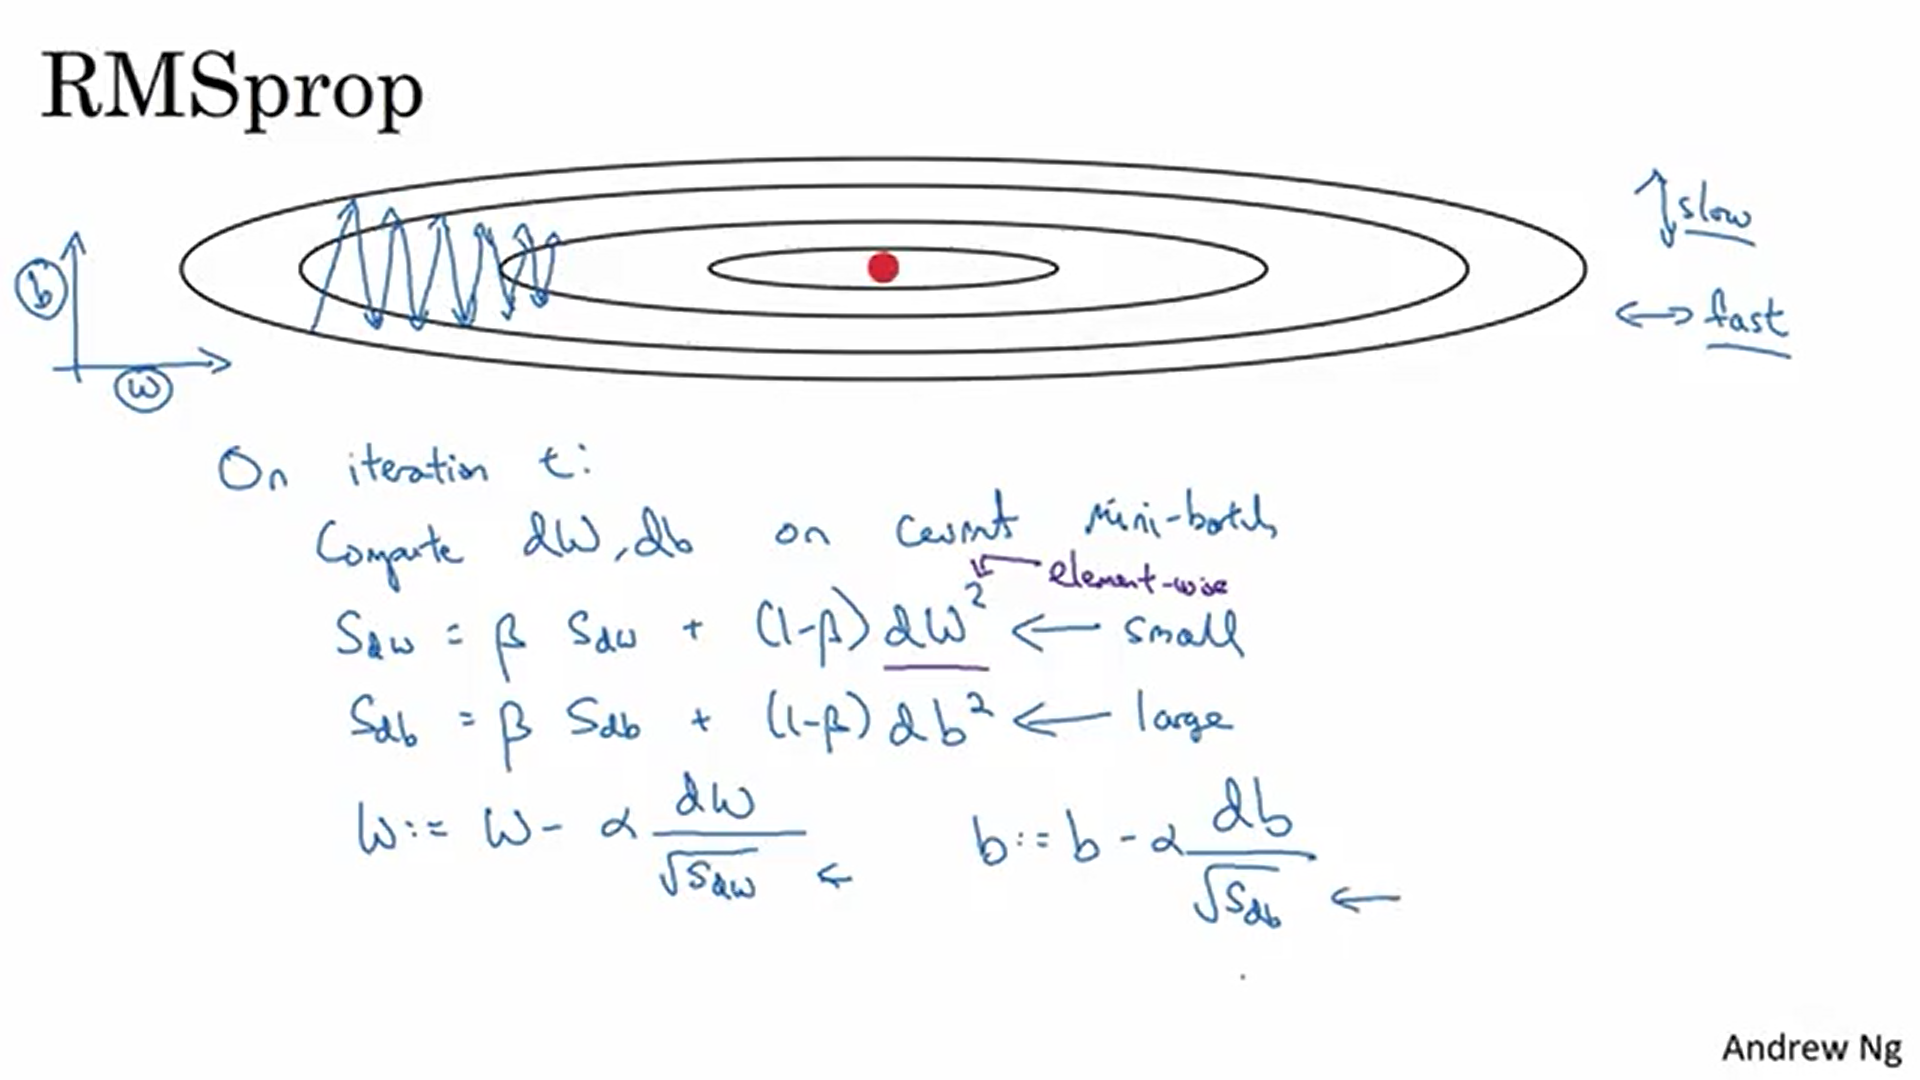 RMSprop
↕ slow
b
↔ fast
w
On iteration t:
Compute dW, db on current mini-batch
element-wise
Sdw = β Sdw + (1-β) dW² ← small
Sdb = β Sdb + (1-β) db² ← large
w := w - α dw/√Sdw ← b := b - α db/√Sdb ←
Andrew Ng